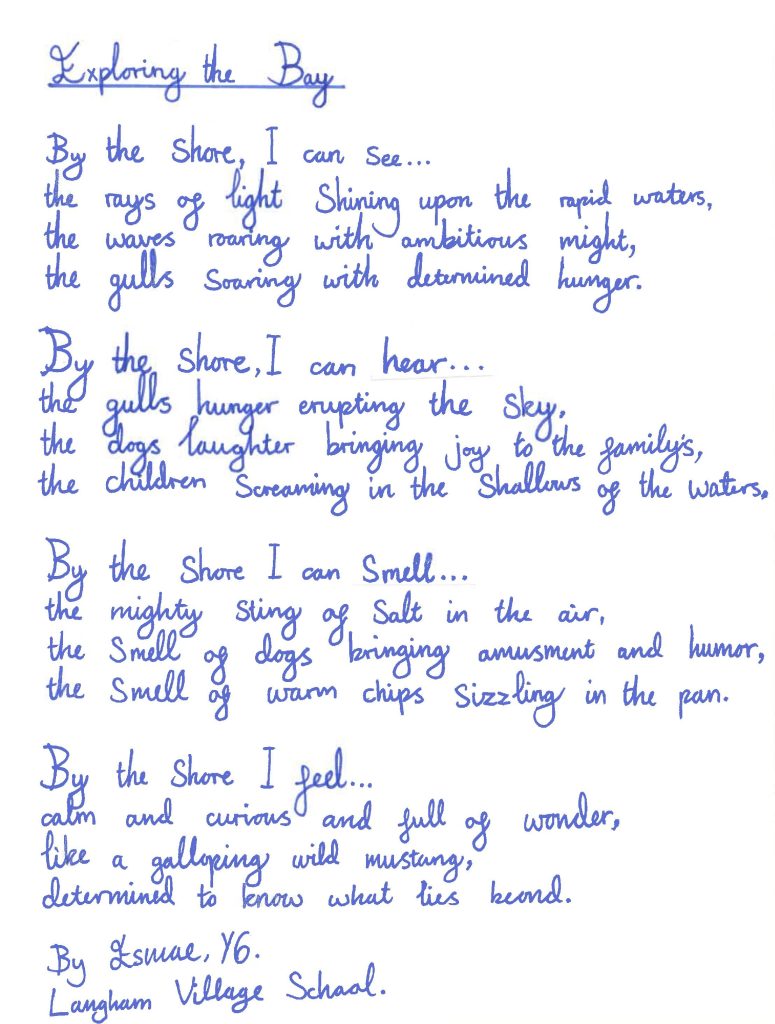 Exploring the Bay
By the Shore, I can see...
the rays of light Shining upon the rapid waters,
the waves roaring with ambitious might,
the gulls Soaring with determined hunger.
By the Shore, I can hear...
the gulls hunger erupting the Sky,
the dogs laughter bringing joy to the family's,
the children Screaming in the Shallows of the waters,
By the Shore I can Smell...
the mighty Sting of Salt in the air,
the Smell of dogs bringing amusment and humor,
the Smell of warm chips Sizzling in the pan.
By the Shore I feel...
calm and curious and full of wonder,
like a galloping wild mustang,
determined to know what lies beond.
By Esmae, Y6.
Langham Village School.